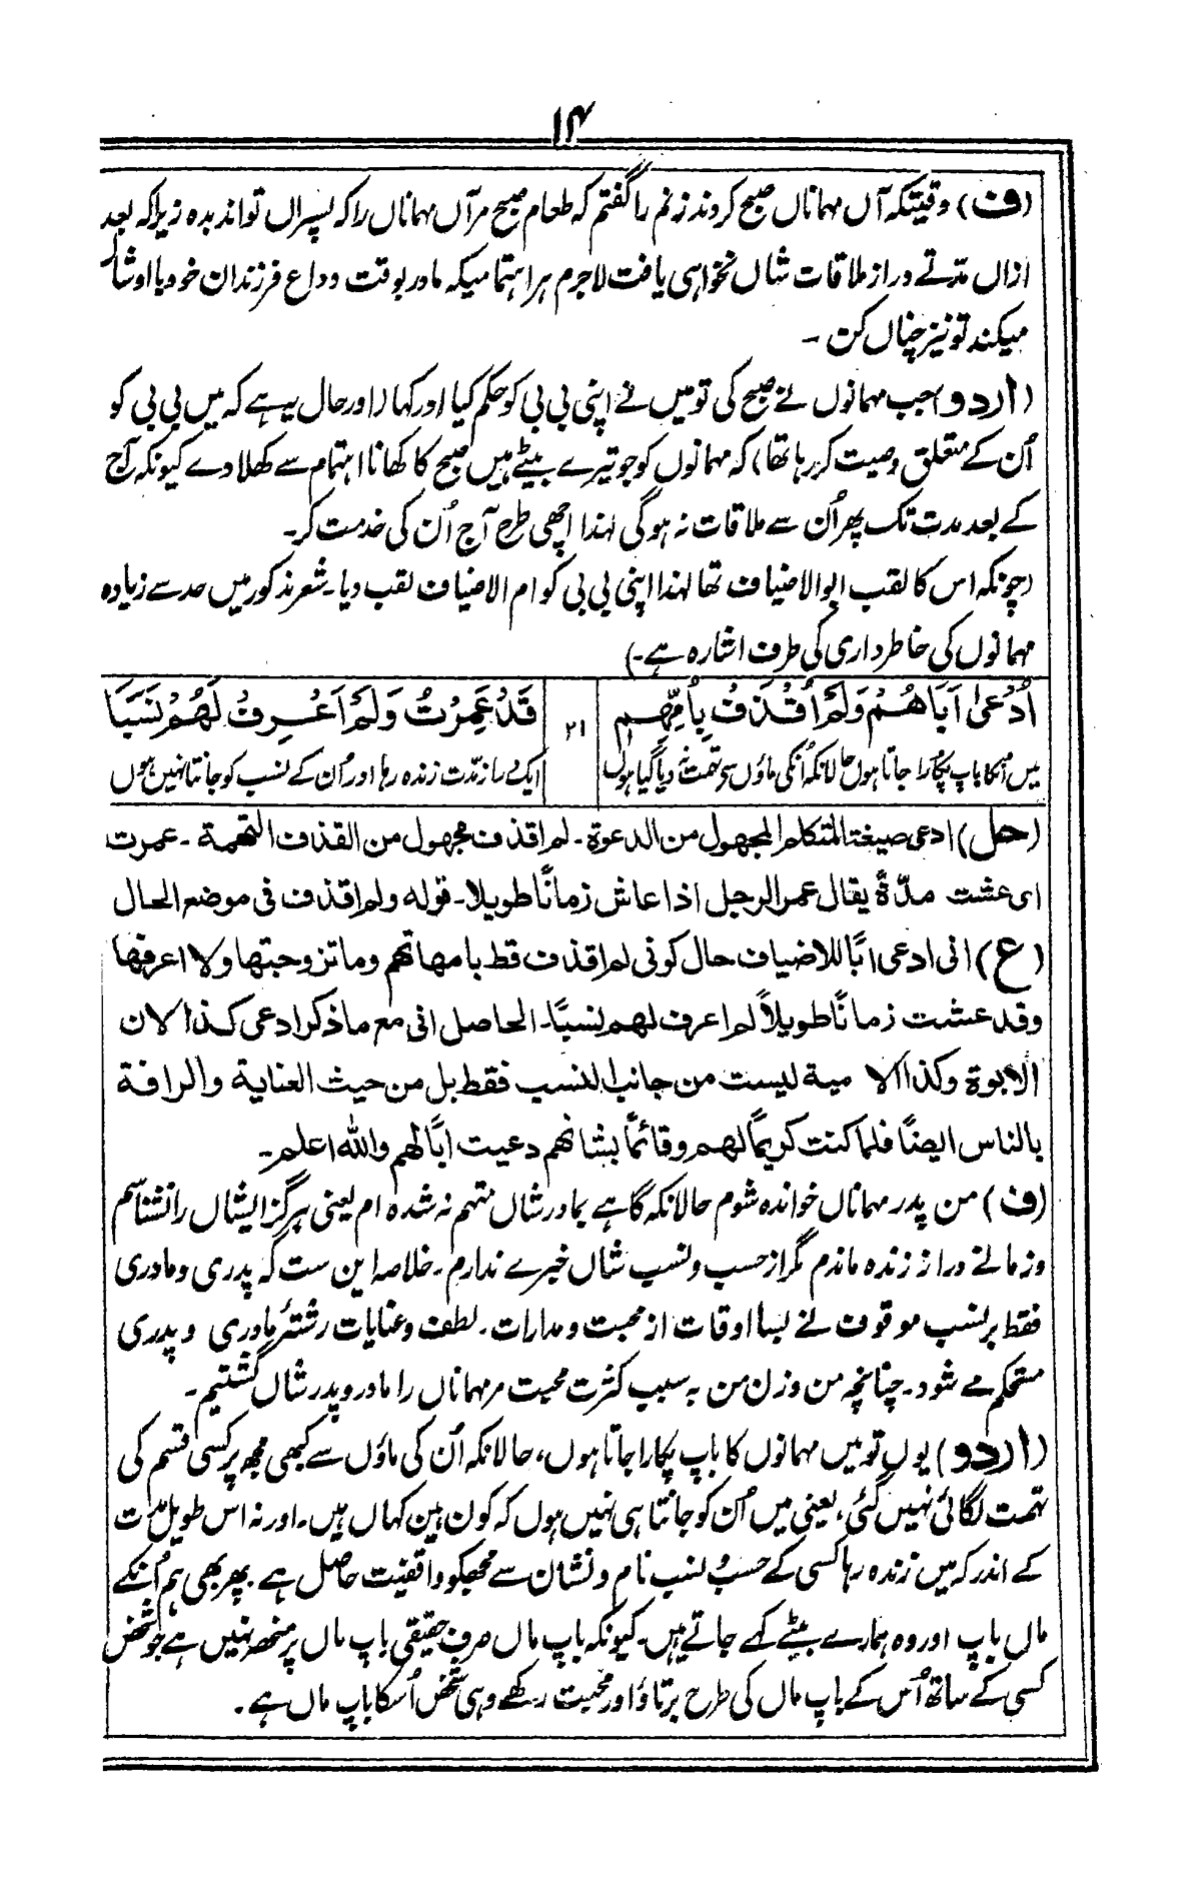 ۱۴
(ف) وقتیکہ آں مہماناں صبح کردند زنم را گفتم کہ طعام صبح مر آں مہماناں را کہ پسراں تو اند بدہ زیراکہ بعد
ازاں مدّتے دراز ملاقات شاں نخواہی یافت لاجرم ہر اہتمامیکہ مادر بوقت وداع فرزندان خود با اوشاں
میکند تو نیز چناں کن ۔
(اردو) جب مہمانوں نے صبح کی تو میں نے اپنی بی بی کو حکم کیا اور کہا (اور حال یہ ہے کہ میں بی بی کو
اُن کے متعلق وصیت کر رہا تھا) کہ مہمانوں کو جو تیرے بیٹے ہیں صبح کا کھانا اہتمام سے کھلا دے کیونکہ آج
کے بعد مدت تک پھر اُن سے ملاقات نہ ہوگی لہذا اچھی طرح آج اُن کی خدمت کر۔
(چونکہ اس کا لقب ابو الاضیاف تھا لہذا اپنی بی بی کو ام الاضیاف لقب دیا۔ شعر مذکور میں حد سے زیادہ
مہمانوں کی خاطر داری کی طرف اشارہ ہے۔)
اُدْعىٰ اَبَاهُمْ وَلَمْ اُقْذَفْ بِاُمِّهِمِ ۲۱ قَدْ عَمِرْتُ وَلَمْ اَعْرِفْ لَهُمْ نَسَبَا
میں انکا باپ پکارا جاتا ہوں حالانکہ اُنکی ماؤں سے تہمت نہ دیا گیا ہوں ایک دراز مدّت زندہ رہا اور اُن کے نسب کو جانتا نہیں ہوں
(حل) ادعی صیغة المتکلم المجهول من الدعوة ۔ لم اقذف مجهول من القذف التهمة ۔ عمرت
ای عشت مدّةً یقال عمر الرجل اذا عاش زمانًا طویلا۔ قوله ولم اقذف فی موضع الحال
(ع) انی ادعی ابًا للاضیاف حال کونی لم اقذف قط بامهاتهم وما تزوجتها ولا اعرفها
وقد عشت زمانًا طویلاً لم اعرف لهم نسبًا۔ الحاصل انی مع ما ذکر ادعی کذا لان
الابوة وکذا الامیة لیست من جانب النسب فقط بل من حیث العنایة والرافة
بالناس ایضًا فلما کنت کریمًا لهم وقائمًا بشانهم دعیت ابًا لهم والله اعلم۔
(ف) من پدر مہماناں خواندہ شوم حالانکہ گاہے بمادر شاں متہم نہ شدہ ام یعنی ہرگز ایشاں را نشناسم
وزمانے دراز زندہ ماندم مگر از حسب و نسب شاں خبرے ندارم ۔ خلاصہ این ست کہ پدری و مادری
فقط بر نسب موقوف نے بسا اوقات از محبت و مدارات ۔ لطف و عنایات رشتۂ مادری و پدری
متحکم مے شود۔ چنانچہ من و زن من بہ سبب کثرت محبت مر مہماناں را مادر و پدر شاں گشتیم۔
(اردو) یوں تو میں مہمانوں کا باپ پکارا جاتا ہوں، حالانکہ اُن کی ماؤں سے کبھی مجھ پر کسی قسم کی
تہمت لگائی نہیں گئی، یعنی میں اُن کو جانتا ہی نہیں ہوں کہ کون ہیں کہاں ہیں۔ اور نہ اس طویل مدت
کے اندر کہ میں زندہ رہا کسی کے حسب و نسب نام و نشان سے مجھکو واقفیت حاصل ہے پھر بھی ہم اُنکے
ماں باپ اور وہ ہمارے بیٹے کہے جاتے ہیں۔ کیونکہ باپ ماں صرف حقیقی باپ ماں پر منحصر نہیں ہے جو شخص
کسی کے ساتھ اُس کے باپ ماں کی طرح برتاؤ اور محبت رکھے وہی شخص اُسکا باپ ماں ہے ۔